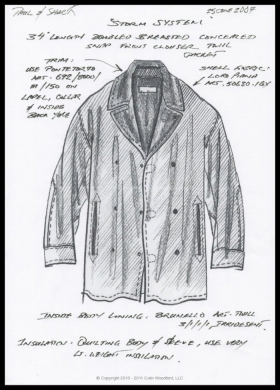 PAUL & SHARK
25 JUNE 2007
"STORM SYSTEM"
34" LENGTH DOUBLED BREASTED CONCEALED
SNAP FRONT CLOUSER TWILL
JACKET
TRIM:
USE PONTETORTO
ART-692/8001/
M/150 ON
LABEL, COLLAR
& INSIDE
BACK YOKE
SHELL FABRIC:
LORO PIANA
ART. 50680-1GX
INSIDE BODY LINING: BRUNELLO ART. TWILL
3/1/1/1, IRRIDESENT.
INSULATION: QUILTING BODY & SLEEVE, USE VERY
LT. WEIGHT INSULATION.
© Copyright 2010 - 2015 Colin Woodford, LLC